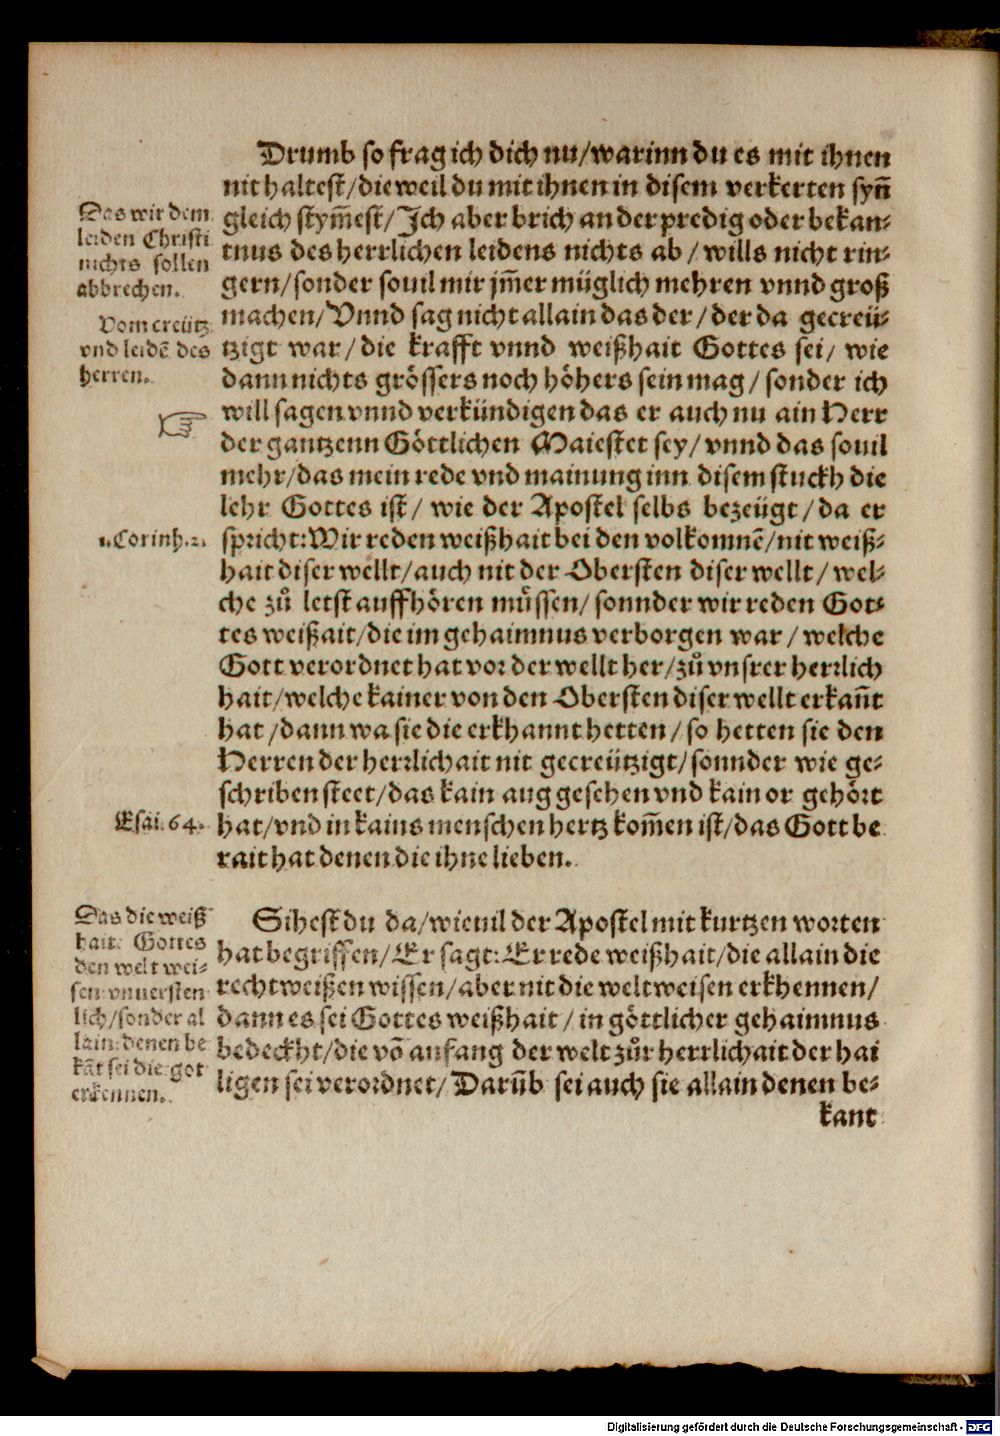 Drumb so frag ich dich nu/warinn du es mit ihnen
nit haltest/die weil du mit ihnen in disem verkerten syn̄
gleich stym̄est/Ich aber brich an der predig oder bekan⸗
tnus des herrlichen leidens nichts ab/wills nicht rin⸗
gern/sonder souil mir jm̄er müglich mehren vnnd groß
machen/Vnnd sag nicht allain das der/der da gecreü⸗
tzigt war/die krafft vnnd weißhait Gottes sei/wie
dann nichts grössers noch höhers sein mag/sonder ich
will sagen vnnd verkündigen das er auch nu ain Herr
der gantzenn Göttlichen Maiestet sey/vnnd das souil
mehr/das mein rede vnd mainung inn disem stuckh die
lehr Gottes ist/wie der Apostel selbs bezeügt/da er
spricht:Wir reden weißhait bei den volkomnē/nit weiß⸗
hait diser wellt/auch nit der Obersten diser wellt/wel⸗
che zů letst auffhören müssen/sonnder wir reden Got⸗
tes weißait/die im gehaimnus verborgen war/welche
Gott verordnet hat vor der wellt her/zů vnsrer herrlich
hait/welche kainer von den Obersten diser wellt erkan̄t
hat/dann wa sie die erkhannt hetten/so hetten sie den
Herren der herrlichait nit gecreützigt/sonnder wie ge⸗
schriben steet/das kain aug gesehen vnd kain or gehört
hat/vnd in kains menschen hertz kom̄en ist/das Gott be
rait hat denen die ihne lieben.
Sihest du da/wieuil der Apostel mit kurtzen worten
hat begriffen/Er sagt:Er rede weißhait/die allain die
recht weißen wissen/aber nit die welt weisen erkhennen/
dann es sei Gottes weißhait/in göttlicher gehaimnus
bedeckht/die vō anfang der welt zůr herrlichait der hai
ligen sei verordnet/Darūb sei auch sie allain denen be⸗
kant
Das wir dem
leiden Christi
nichts sollen
abbrechen.
Vom creütz
vnd leidē des
herren.
1.Corinh.2.
Esai.64.
Das die weiß
hait Gottes
den welt wei⸗
sen vnuersten
lich/sonder al
lain denen be
kāt sei die got
erkennen.
Digitalisierung gefördert durch die Deutsche Forschungsgemeinschaft - DFG